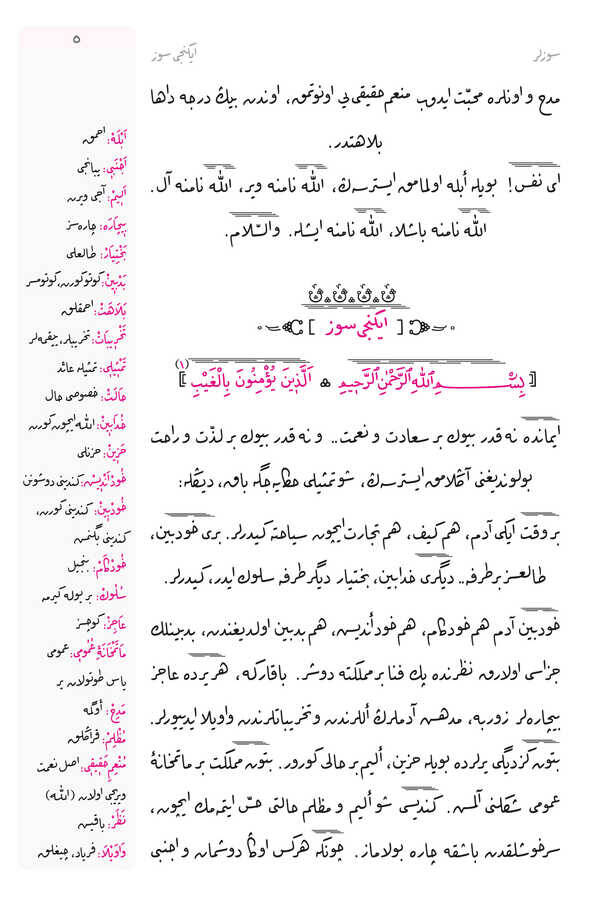 سوزلر
ايكنجى سوز
٥
مدح و اونلره محبّت ايدوب منعم حقيقى‌يى اونوتمق، اوندن بيڭ درجه داها
بلاهتدر.
اى نفس! بويله أبله اولمامق ايسترسه‌ڭ، اللّٰه نامنه وير، اللّٰه نامنه آل.
اللّٰه نامنه باشلا، اللّٰه نامنه ايشله. والسّلام.
[ ايكنجى سوز ]
[ بِسْمِ اللّٰهِ الرَّحْمٰنِ الرَّحِيمِ ❁ اَلَّذِينَ يُؤْمِنُونَ بِالْغَيْبِ ] (١)
ايمانده نه قدر بيوك بر سعادت و نعمت.. و نه قدر بيوك بر لذّت و راحت
بولونديغنى آڭلامق ايسترسه‌ڭ، شو تمثيلى حكايه‌جگه باق، ديڭله:
بر وقت ايكى آدم، هم كيف، هم تجارت ايچون سياحته كيدرلر. برى خودبين،
طالعسز بر طرفه.. ديگرى خدابين، بختيار ديگر طرفه سلوك ايدر، كيدرلر.
خودبين آدم هم خودكام، هم خودأنديش، هم بدبين اولديغندن، بدبينلك
جزاسى اولارق نظرنده پك فنا بر مملكته دوشر. باقار كه، هر يرده عاجز
بيچاره‌لر زوربه، مدهش آدملرڭ أللرندن و تخريباتلرندن واويلا ايدييورلر.
بتون كزديگى يرلرده بويله حزين، أليم بر حالى كورور. بتون مملكت بر ماتمخانۀ
عمومى شكلنى آلمش. كنديسى شو أليم و مظلم حالتى حسّ ايتمه‌مك ايچون،
سرخوشلقدن باشقه چاره بولاماز. چونكه هركس اوڭا دوشمان و اجنبى
اَبْلَهْ: احمق
اَجْنَبِى: يبانجى
اَلِيمْ: آجى ويرن
بِيچَارَه: چاره‌سز
بَخْتِيَارْ: طالعلى
بَدْبِينْ: كوتو كورن، كوتومسر
بَلَاهَتْ: احمقلق
تَخْرِيبَاتْ: تخريبلر، ييقمه‌لر
تَمْثِيلِى: تمثيله عائد
حَالَتْ: خصوصى حال
خُدَابِينْ: اللّٰه ايچون كورن
حَزِينْ: حزنلى
خُودْاَنْدِيشْ: كندينى دوشونن
خُودْبِينْ: كندينى كورن،
كندينى بگنمش
خُودْكَامْ: بنجيل
سُلُوكْ: بر يوله كيرمه
عَاجِزْ: كوجسز
مَاتَمْخَانَۀِ عُمُومِى: عمومى
ياس طوتولان ير
مَدِحْ: أوگمه
مُظْلِمْ: قراڭلق
مُنْعِمِ حَقِيقِى: اصل نعمت
ويريجى اولان (اللّٰه)
نَظَرْ: باقيش
وَاوَيْلَا: فرياد، چيغلق